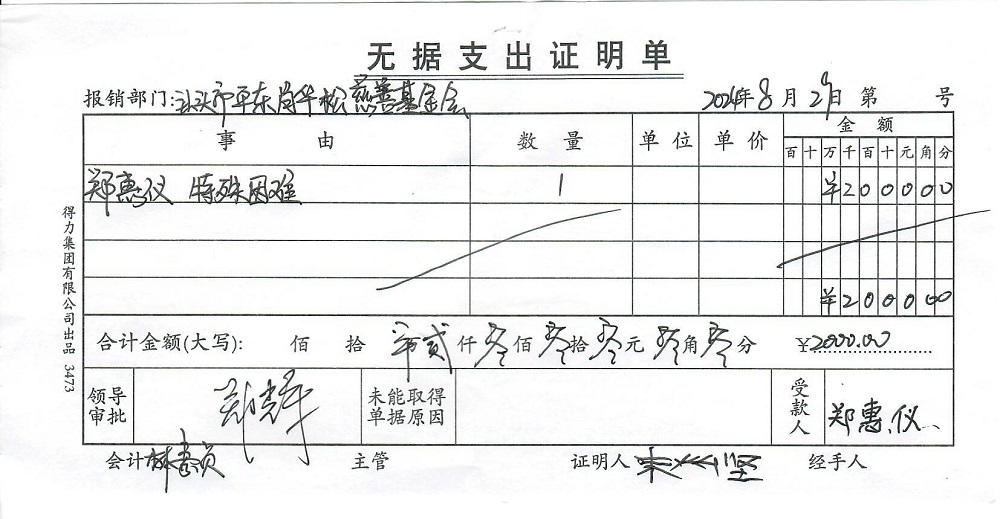 无据支出证明单
报销部门: 汕头市 慈善基金会 2024年8月29日 第 号
事 由 数 量 单 位 单 价 金 额
百 十 万 千 百 十 元 角 分
郑惠仪 特殊困难 1 ¥200000
¥200000
合计金额(大写): 佰 拾 万贰仟零佰零拾零元零角零分 ¥2000.00
领导审批 未能取得单据原因 受款人 郑惠仪
会计 主管 证明人 经手人
得力集团有限公司出品 3473